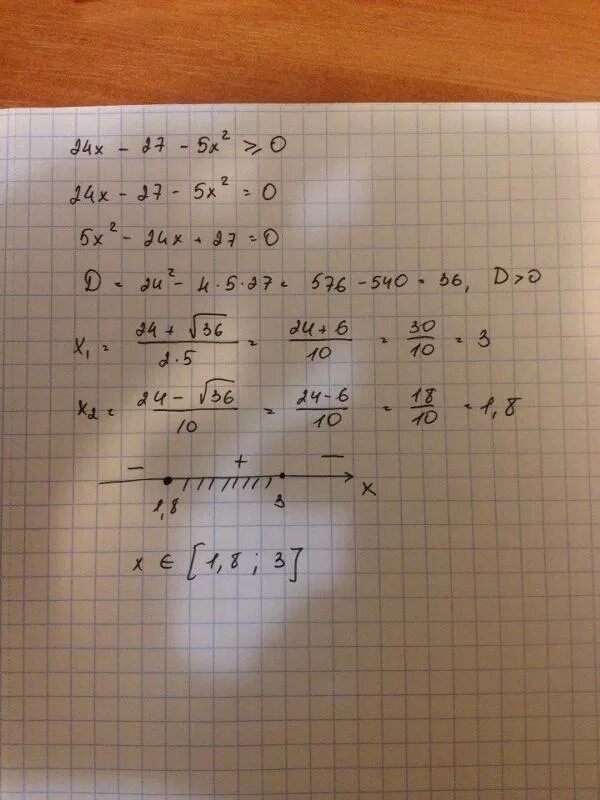 24x - 27 - 5x² ⩾ 0
24x - 27 - 5x² = 0
5x² - 24x + 27 = 0
D = 24² - 4·5·27 = 576 - 540 = 36, D > 0
x₁ = (24 + √36)/(2·5) = (24 + 6)/10 = 30/10 = 3
x₂ = (24 - √36)/10 = (24 - 6)/10 = 18/10 = 1,8
- + -
1,8 3 x
x ∈ [1,8 ; 3]